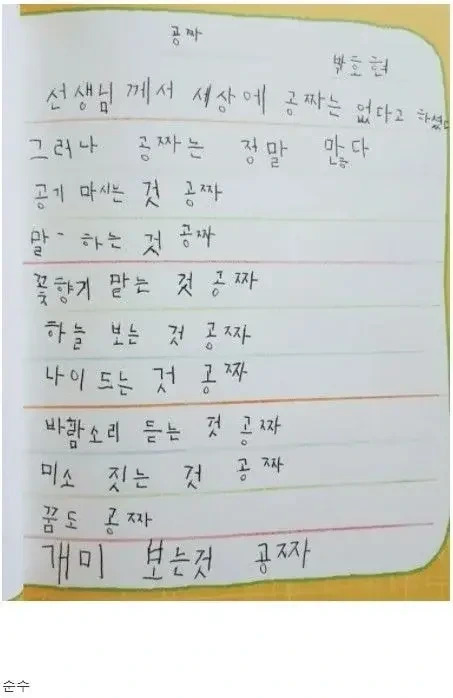 공짜
박호현
선생님 께서 세상에 공짜는 없다고 하셨다
그러나 공짜는 정말 많다
공기 마시는 것 공짜
말 하는 것 공짜
꽃향기 맡는 것 공짜
하늘 보는 것 공짜
나이 드는 것 공짜
바람소리 듣는 것 공짜
미소 짓는 것 공짜
꿈도 공짜
개미 보는것 공짜
순수